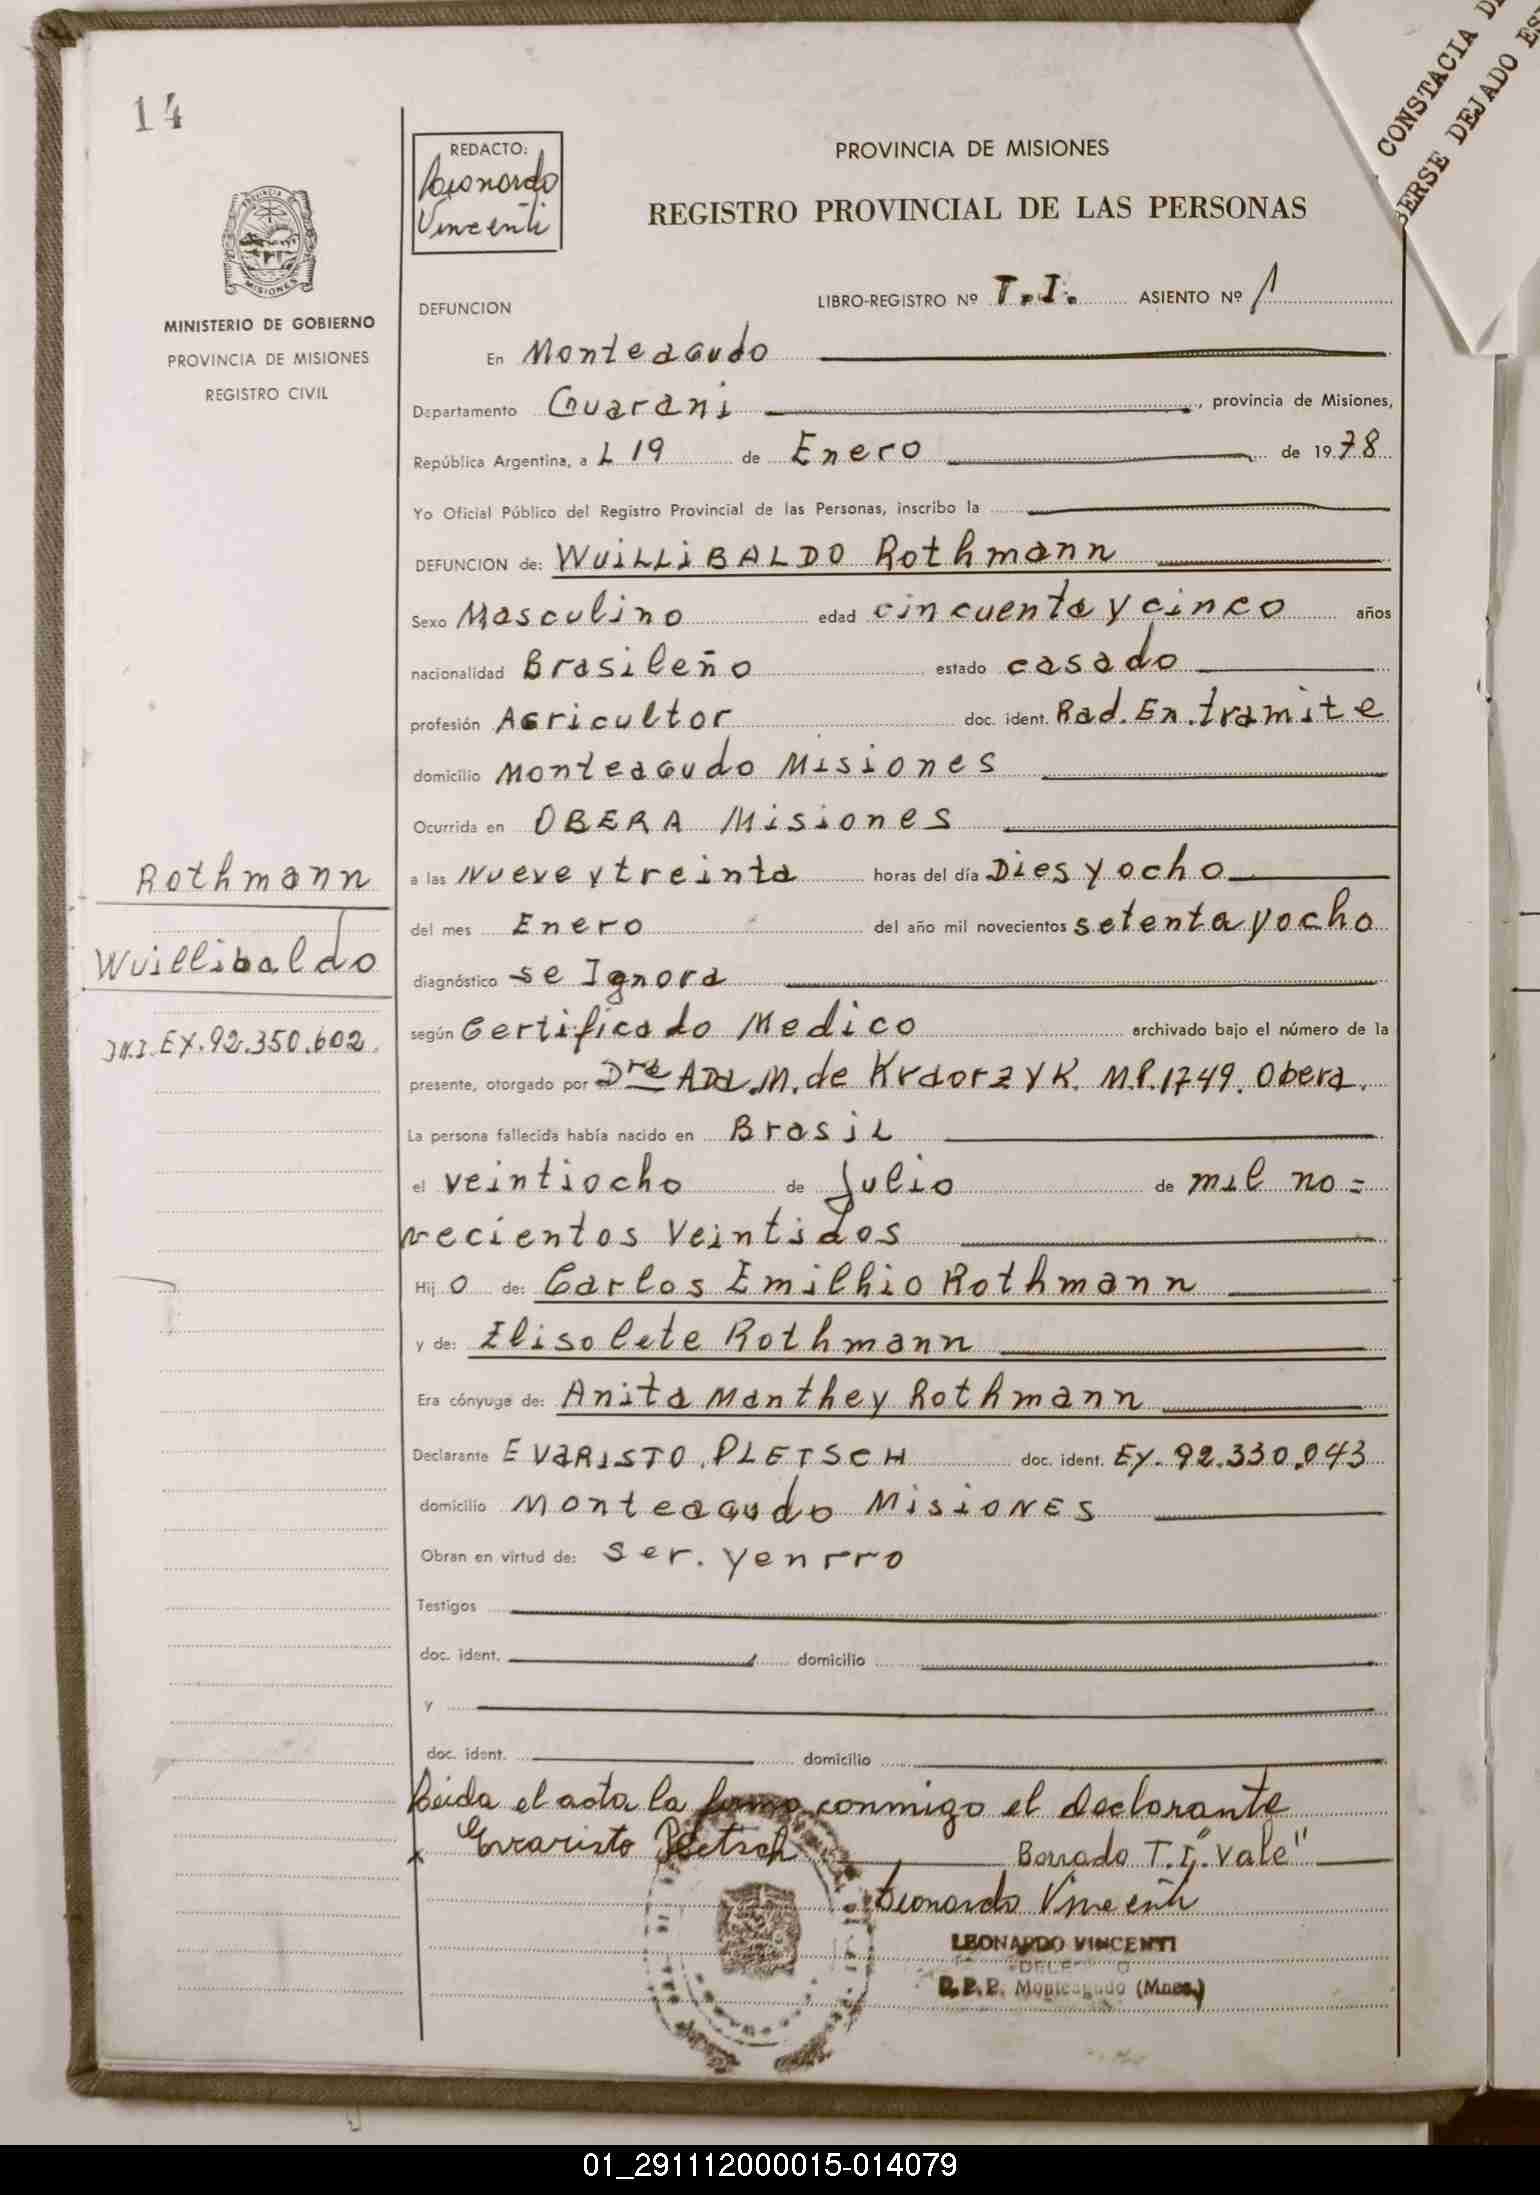 14
CONSTACIA D
BERSE DEJADO ES
REDACTO:
Leonardo
Vincenti
PROVINCIA DE MISIONES
REGISTRO PROVINCIAL DE LAS PERSONAS
MISIONES
MINISTERIO DE GOBIERNO
PROVINCIA DE MISIONES
REGISTRO CIVIL
DEFUNCION LIBRO-REGISTRO Nº T.I. ASIENTO Nº 1
En Monteagudo
Departamento Guarani, provincia de Misiones,
República Argentina, a L 19 de Enero de 1978
Yo Oficial Público del Registro Provincial de las Personas, inscribo la
DEFUNCION de: WUiLLiBALDO Rothmann
Sexo Masculino edad cincuenta y cinco años
nacionalidad Brasileño estado casado
profesión Agricultor doc. ident. Rad. En. tramite
domicilio Monteagudo Misiones
Ocurrida en OBERA Misiones
a las Nueve y treinta horas del día Dies y ocho
del mes Enero del año mil novecientos setenta y ocho
diagnóstico se Ignora
según Certificado Medico archivado bajo el número de la
presente, otorgado por Dra ADA.M. de KraorzyK. M.P.1749. Obera.
La persona fallecida había nacido en BrasiL
el veintiocho de Julio de mil no=
vecientos Veintidos
Hijo de: Carlos Emilhio Rothmann
y de: Elisolete Rothmann
Era cónyuge de: Anita Manthey Rothmann
Declarante EVARISTO. PLETSCH doc. ident. Ex. 92.330.043
domicilio Monteagudo MisiONES
Obran en virtud de: Ser. yenrro
Testigos
doc. ident. domicilio
y
doc. ident. domicilio
Leida el acta la firma conmigo el declarante
x Evaristo Pletsch Borrado T.I. "Vale"
Leonardo Vincenti
LEONARDO VINCENTI
R.P.P. Monteagudo (Mnes.)
Rothmann
Wuillibaldo
D.N.I. EX. 92.350.602.
01_291112000015-014079